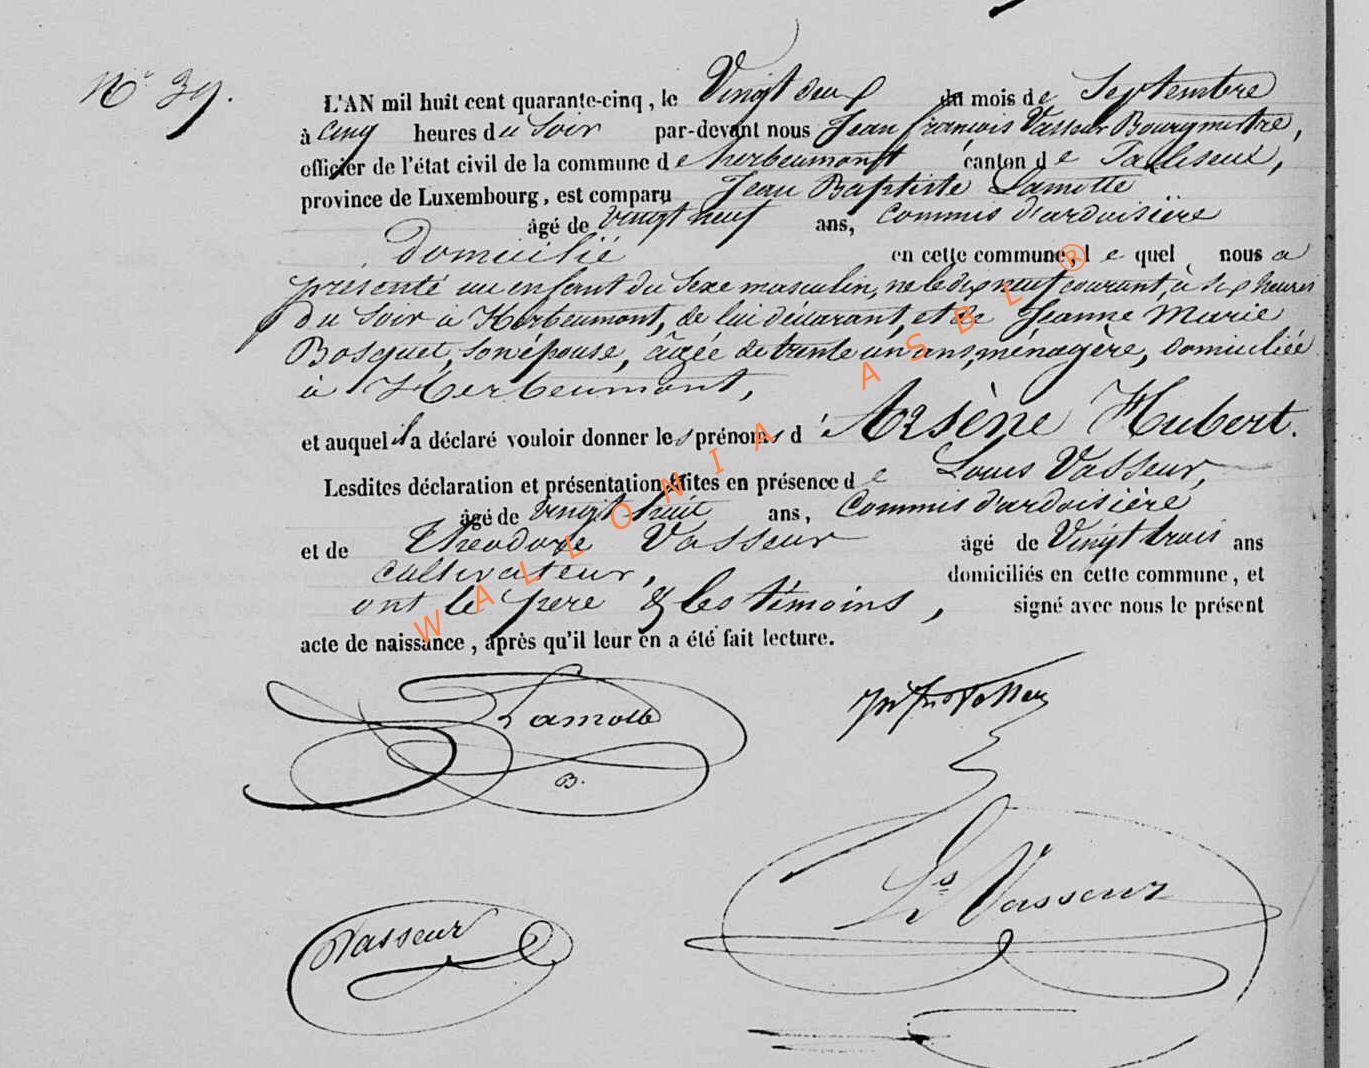 N° 39.
L'AN mil huit cent quarante-cinq, le Vingt deux du mois de Septembre
à cinq heures du soir par-devant nous Jean françois Vasseur Bourgmestre,
officier de l'état civil de la commune de herbeumont canton de Paliseul,
province de Luxembourg, est comparu Jean Baptiste Lamotte
âgé de vingt neuf ans, commis d'ardoisière
domicilié en cette commune, lequel nous a
présenté un enfant du Sexe masculin, né le dix neuf courant, à six heures
du Soir à Herbeumont, de lui déclarant, et de Jeanne Marie
Bosquet, son épouse, âgée de trente un ans, ménagère, domiciliée
à Herbeumont,
et auquel il a déclaré vouloir donner les prénoms d'Arsène Hubert.
Lesdites déclaration et présentation faites en présence de Louis Vasseur,
âgé de vingt huit ans, Commis d'ardoisière
et de Théodore Vasseur âgé de Vingt trois ans
cultivateur, domiciliés en cette commune, et
ont le père & les témoins, signé avec nous le présent
acte de naissance, après qu'il leur en a été fait lecture.
Lamotte
B.
Ls Vasseur
Vasseur
WALLONIA ASBL ®